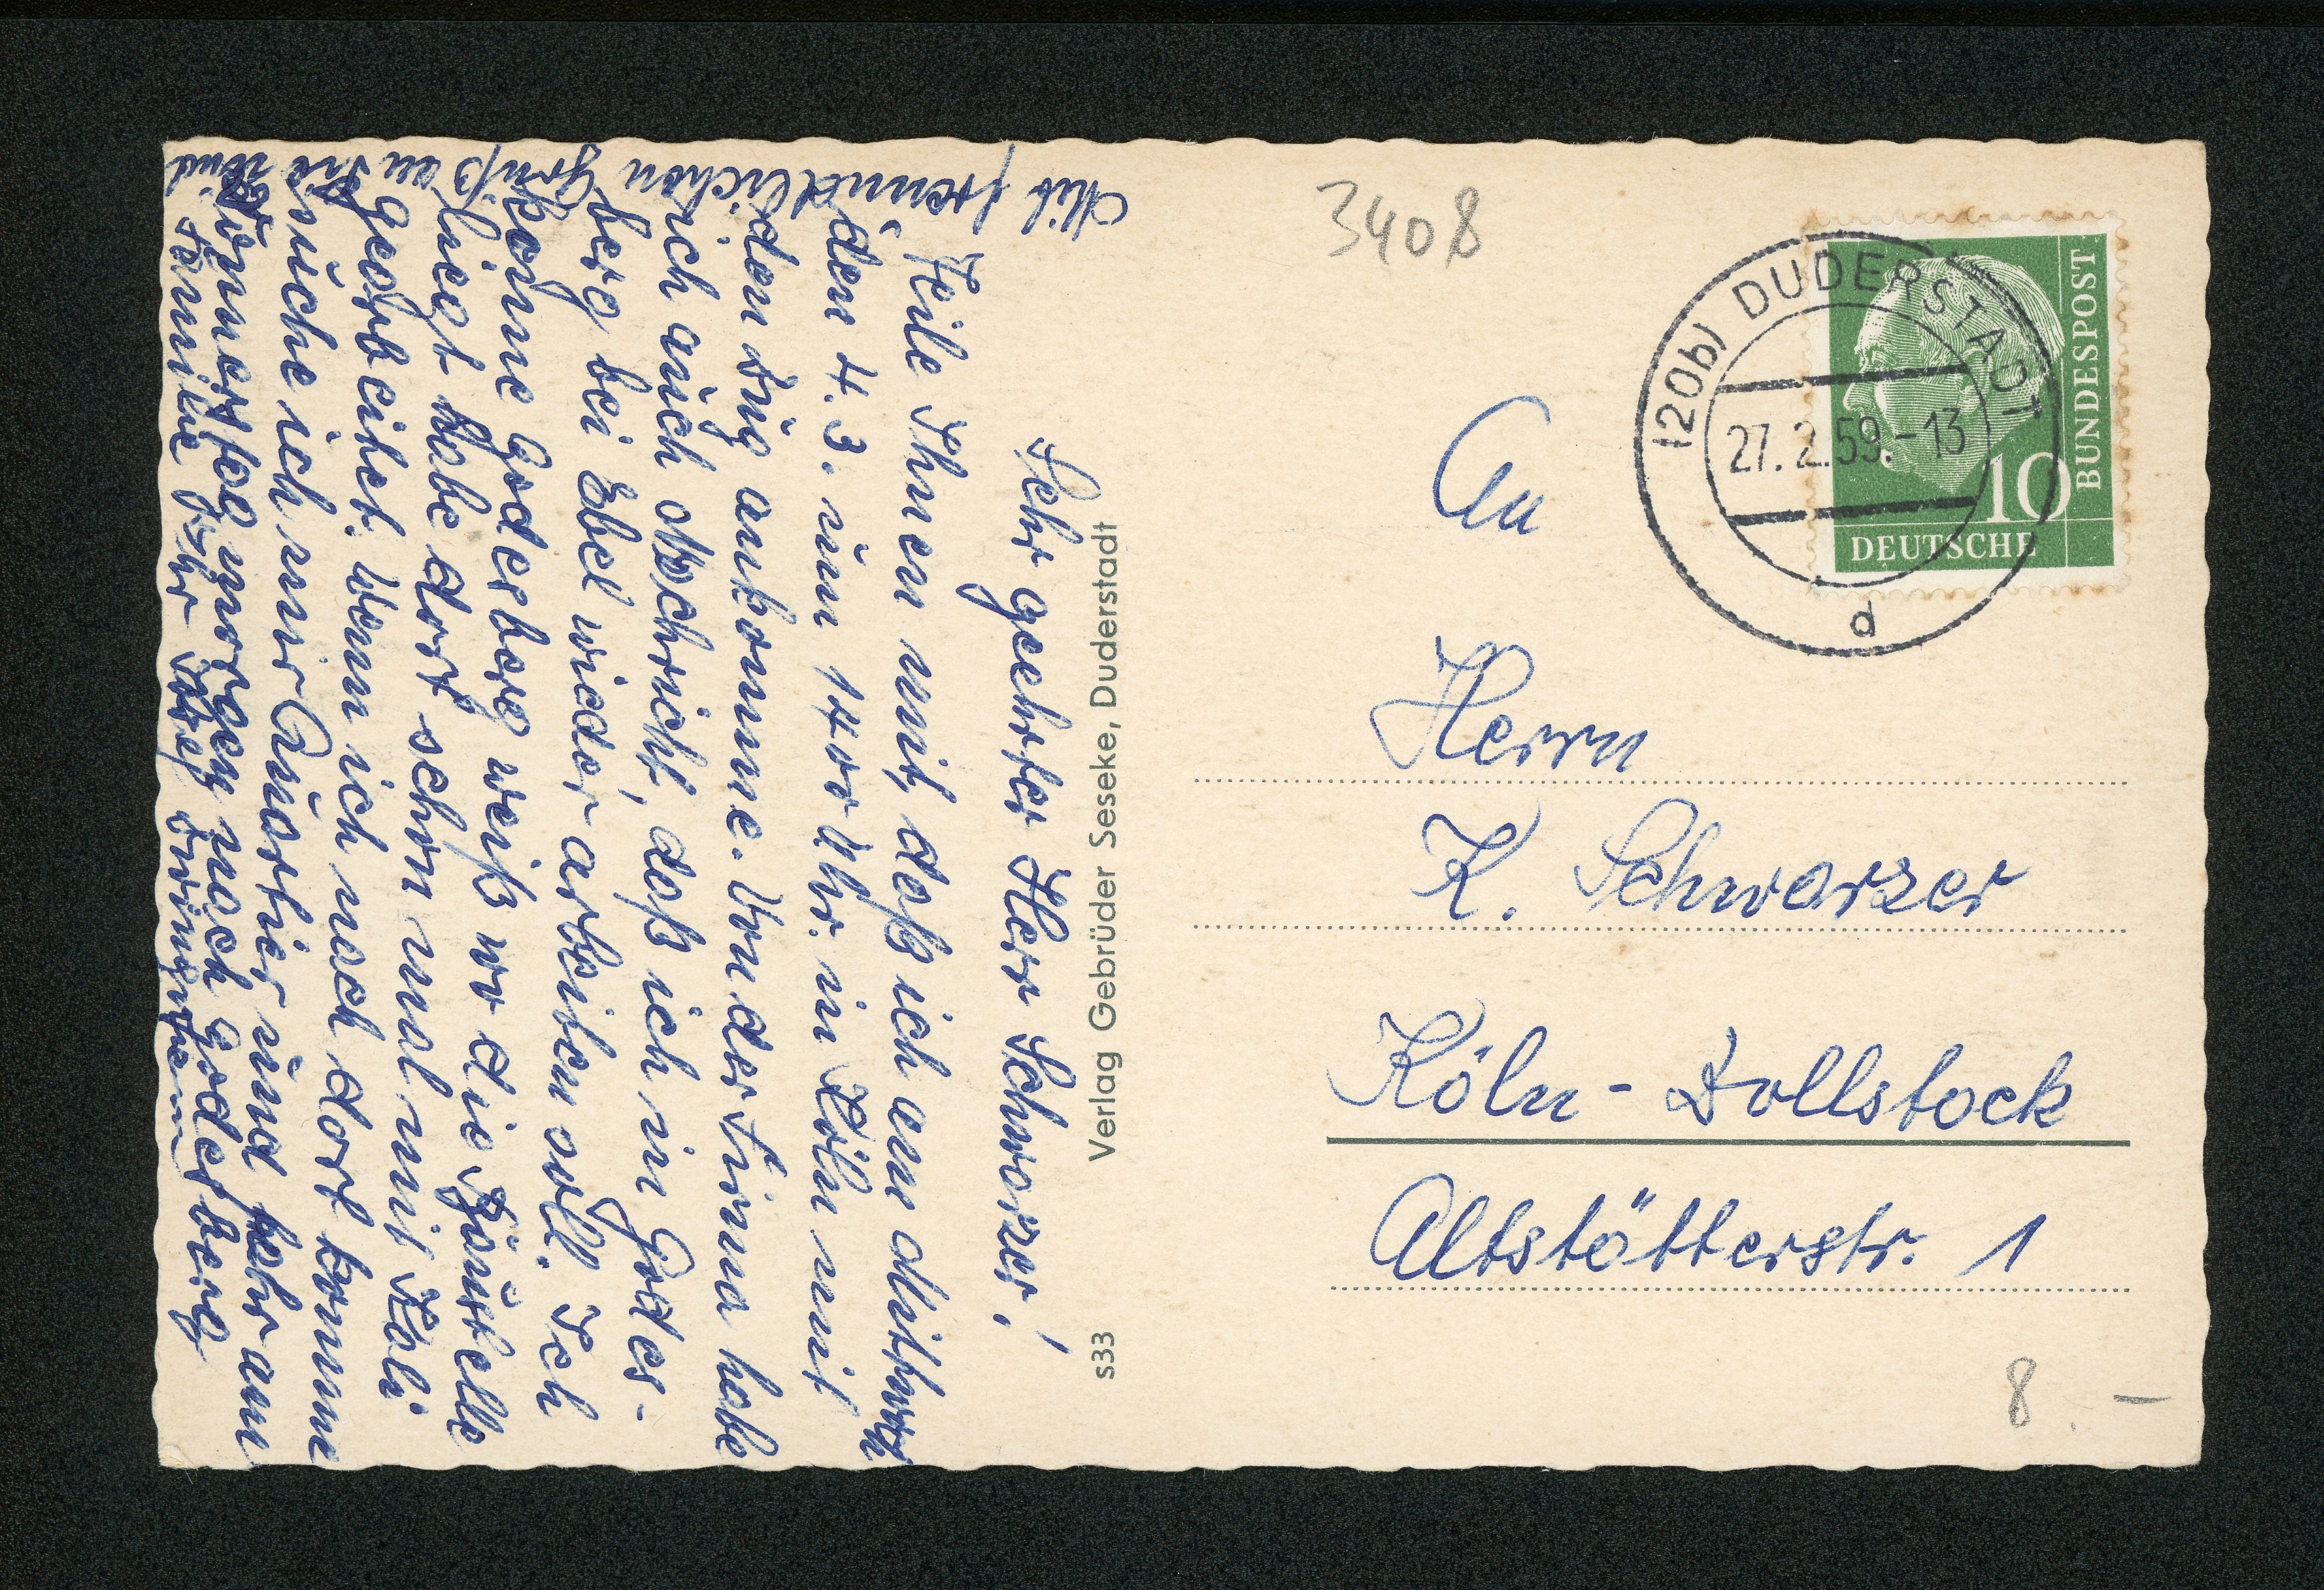 Sehr geehrter Herr Schwarzer!
Teile Ihnen mit, daß ich am Mittwoch
den 4.3. um 14 00 Uhr. in Köln mit
den Zug ankomme. Von der Firma habe
ich auch Nachricht, daß ich in Godes-
berg bei Ebel wieder arbeiten soll. Ich
kenne Godesberg weiß wo die Baustelle
liegt habe dort schon mal mit Kali
gearbeitet. Wenn ich nach dort komme
suche ich mir Quartier und fahr am
Donnerstag morgen nach Godesberg
Mit freundlichen Gruß an Sie und
Familie Ihr
Verlag Gebrüder Seseke, Duderstadt
s33
3408
(20b) DUDERSTADT
27.2.59.-13
a
10
DEUTSCHE
BUNDESPOST
An
Herrn
K. Schwarzer
Köln - Zollstock
Altstätterstr. 1
8.-